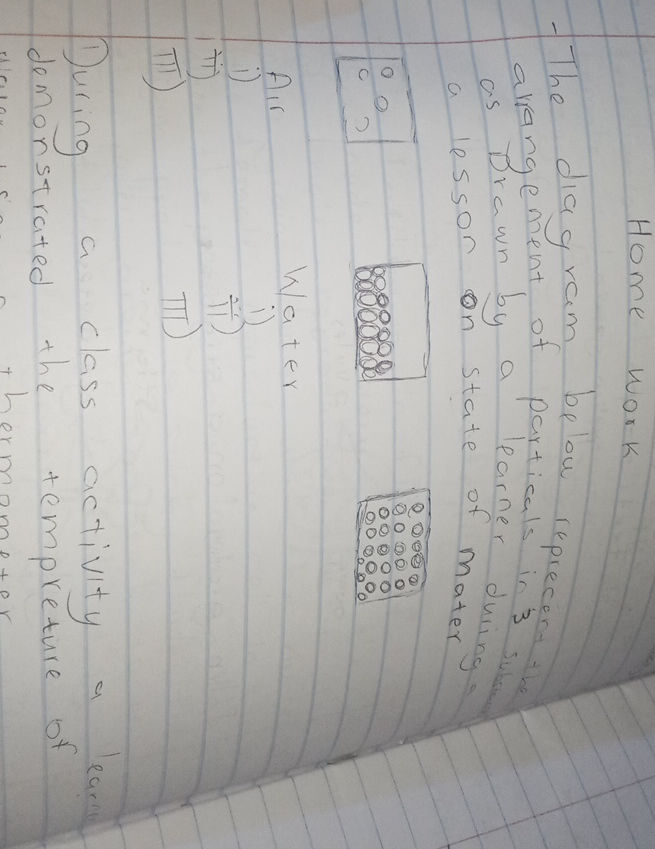 Home work
- The diagram below reprecent the
arrangement of particals in 3
as Drawn by a learner during a
a lesson on state of mater
Air
Water
i)
i)
ii)
ii)
III)
III)
During a class activity a
demonstrated the tempreture of
thermometer